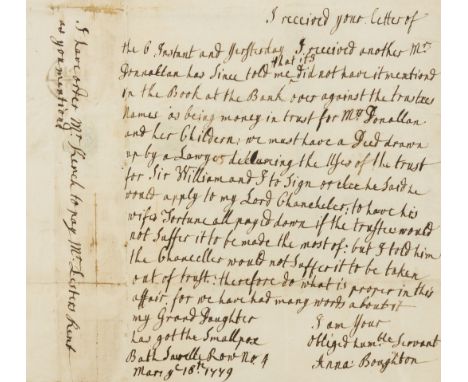 I received your Letter of
the 6 Instant and yesterday I received another Mr
Donnallan has Since told me that if I did not have it mentiond
in the Book at the Bank over against the trustees
Names as being money in trust for Mrs Donallan
and her Childern; we must have a Deed drawn
up by a Lawyer declaring the Uses of the trust
for Sir William and I to Sign or elce he Said he
would apply to my Lord Chanceler; to have his
wifes Fortune all payed down if the trustee would
not Suffer it to be made the most of; but I told him
the Chanceller would not Suffer it to be taken
out of trust; therefore do what is proper in this
affair, for we have had many words about it
my Grand Daughter
has got the Smallpox
Bath Savelle Row No 4
Mar; ye 18th 1779
I am Your
Obliged humble Servant
Anna Boughton
I have order Mr to pay Mr Lesters Rent
as you mentiond